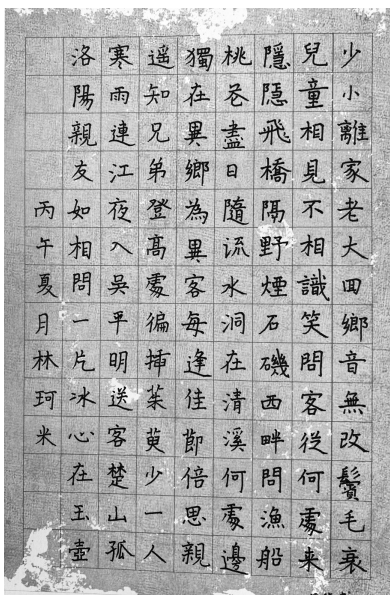 少小離家老大回鄉音無改鬢毛衰
兒童相見不相識笑問客從何處来
隱隱飛橋隔野煙石磯西畔問漁船
桃花盡日隨流水洞在清溪何處邊
獨在異鄉為異客每逢佳節倍思親
遥知兄弟登高處徧插茱萸少一人
寒雨連江夜入吳平明送客楚山孤
洛陽親友如相問一片冰心在玉壺
丙午夏月林珂米